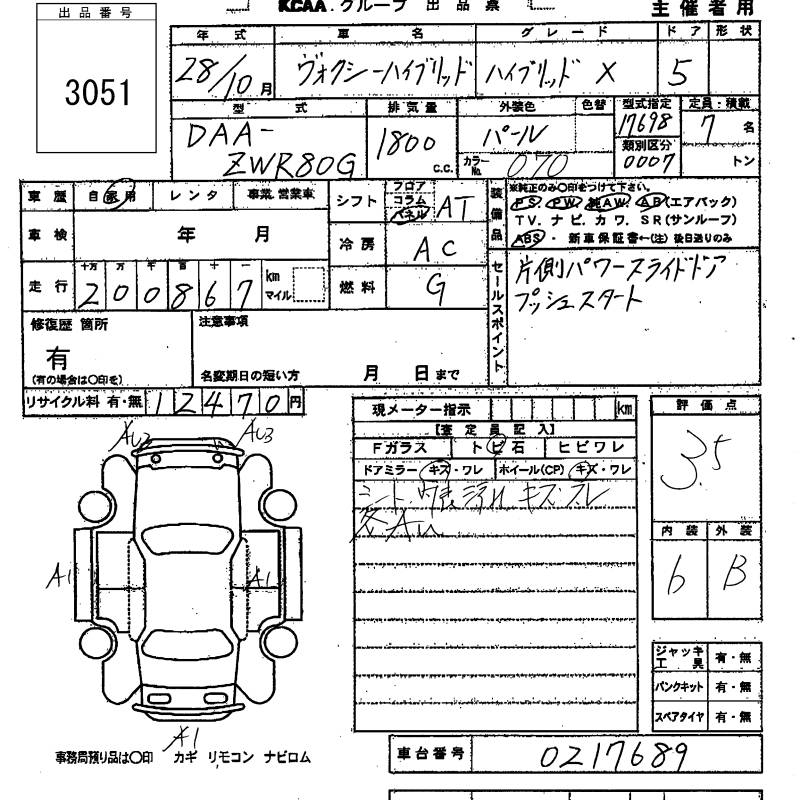 KCAA.グループ 出品票 主催者用
出品番号
3051
年式 車名 グレード ドア 形状
28/10月 ヴォクシーハイブリッド ハイブリッド X 5
型式 排気量 外装色 色替 型式指定 定員・積載
DAA-ZWR80G 1800 c.c. パール 17698 7名
カラーNo. 070 類別区分 0007 トン
車歴 自家用 レンタ 事業.営業車
車検 年 月
走行 十万 万 千 百 十 一 km マイル
200867
シフト フロア コラム パネル AT
冷房 AC
燃料 G
装備品 ※純正のみ○印をつけて下さい。
PS. PW. 純AW. AB(エアバック)
TV. ナビ. カワ. SR(サンルーフ)
ABS・新車保証書←(注)後日送りのみ
セールスポイント 片側パワースライドドア
プッシュスタート
修復歴 箇所
有
(有の場合は○印を)
注意事項
名変期日の短い方 月 日まで
リサイクル料 有・無 12470円
現メーター指示 km
【査定員記入】
Fガラス トビ石 ヒビワレ
ドアミラー キズ・ワレ ホイール(CP) キズ・ワレ
シート、内装 汚れ キズ、スレ
各AU
評価点
3.5
内装 外装
b B
AU2 AU3
A1 A1
A1
ジャッキ工具 有・無
パンクキット 有・無
スペアタイヤ 有・無
事務局預り品は○印 カギ リモコン ナビロム
車台番号 0217689